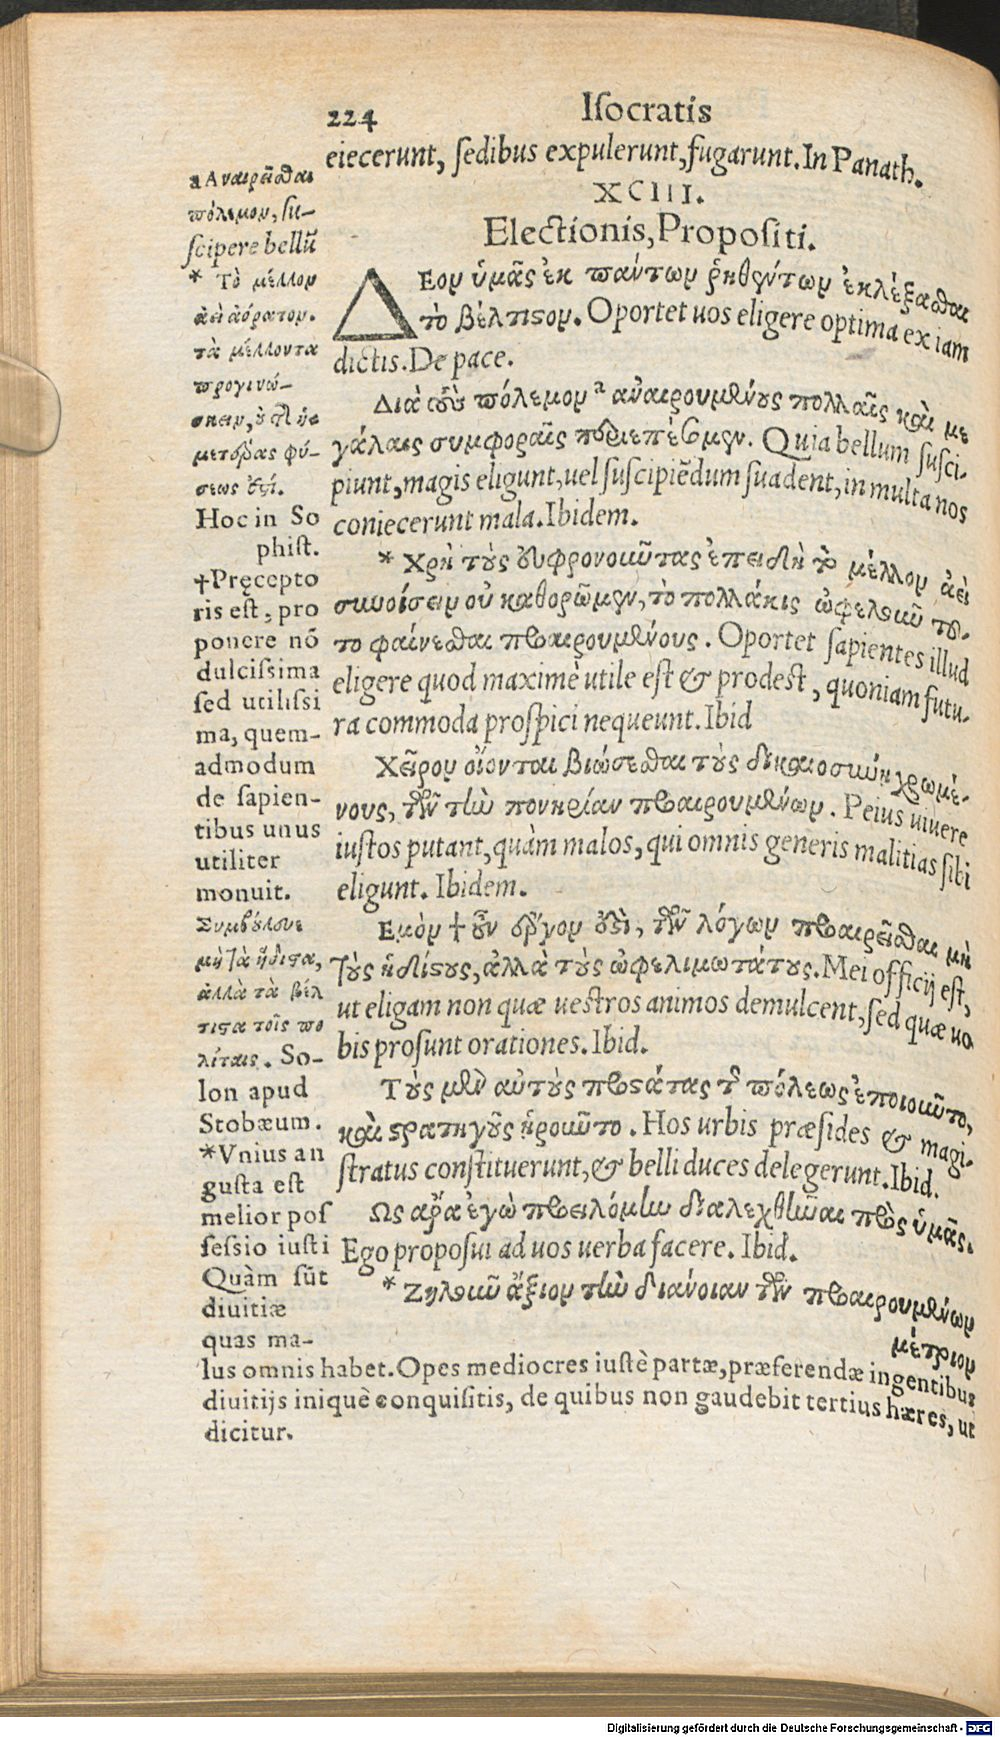 224 Iſocratis
eiecerunt, ſedibus expulerunt, fugarunt. In Panath.
XCIII.
Electionis, Propoſiti.
ΔΕον ὑμᾶς ἐκ πάντων ῥηθέντων ἐκλέξασθαι
τὸ βέλτιστον. Oportet uos eligere optima ex iam
dictis. De pace.
Διὰ τοὺς πόλεμον ᵃ ἀναιρουμένους πολλαῖς καὶ με
γάλαις συμφοραῖς περιεπέσομεν. Quia bellum ſuſci-
piunt, magis eligunt, uel ſuſcipiẽdum ſuadent, in multa nos
coniecerunt mala. Ibidem.
* Χρὴ τοὺς εὐφρονοῦντας ἐπειδὴ τὸ μέλλον ἀεὶ
συνοίσειν οὐ καθορῶμεν, τὸ πολλάκις ὠφελοῦν τοῦ-
το φαίνεσθαι προαιρουμένους. Oportet ſapientes illud
eligere quod maximè utile eſt & prodeſt, quoniam futu-
ra commoda proſpici nequeunt. Ibid
Χεῖρον οἴονται βιώσεσθαι τοὺς δικαιοσύνῃ χρωμέ-
νους, τῶν τὴν πονηρίαν προαιρουμένων. Peius uiuere
iuſtos putant, quàm malos, qui omnis generis malitias ſibi
eligunt. Ibidem.
Εμὸν † οὖν ἔργον ἐστὶ, τῶν λόγων προαιρεῖσθαι μὴ
τοὺς ἡδίστους, ἀλλὰ τοὺς ὠφελιμωτάτους. Mei officij eſt,
ut eligam non quæ ueſtros animos demulcent, ſed quæ uo
bis proſunt orationes. Ibid.
Τοὺς μὲν αὐτοὺς προστάτας τῆς πόλεως ἐποιοῦντο,
καὶ στρατηγοὺς ᾑροῦντο. Hos urbis præſides & magi-
ſtratus conſtituerunt, & belli duces delegerunt. Ibid.
Ως ἄρα ἐγὼ προειλόμην διαλεχθῆναι πρὸς ὑμᾶς.
Ego propoſui ad uos uerba facere. Ibid.
* Ζηλοῦν ἄξιον τὴν διάνοιαν τῶν προαιρουμένων
μέτριον
a Αναιρεῖσθαι
πόλεμον, ſu-
ſcipere bellũ
* Τὸ μέλλον
ἀεὶ ἀόρατον.
τὰ μέλλοντα
προγινώ-
σκειν, οὐ τῆς ἡ-
μετέρας φύ-
σεως ἐστί.
Hoc in So
phiſt.
†Pręcepto
ris eſt, pro
ponere nõ
dulciſsima
ſed utiliſsi
ma, quem-
admodum
de ſapien-
tibus unus
utiliter
monuit.
Συμβούλευε
μὴ τὰ ἥδιστα,
ἀλλὰ τὰ βέλ
τιστα τοῖς πο
λίταις. So-
lon apud
Stobæum.
*Vnius an
guſta eſt
melior poſ
ſeſsio iuſti
Quàm ſũt
diuitiæ
quas ma-
lus omnis habet. Opes mediocres iuſtè partæ, præferendæ ingentibus
diuitijs iniquè conquiſitis, de quibus non gaudebit tertius hæres, ut
dicitur.
Digitalisierung gefördert durch die Deutsche Forschungsgemeinschaft - DFG